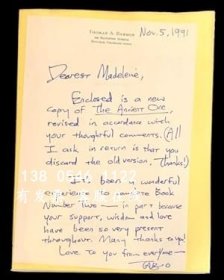 THOMAS A. BARRON
Nov. 5, 1991
Dearest Madeleine,
Enclosed is a new
copy of The Ancient One,
revised in accordance with
your thoughtful comments. (All
I ask in return is that you
discard the old version, Thanks!)
It's been a wonderful
experience to create Book
Number Two — in part because
your support, wisdom and love
have been so very present
throughout. Many thanks to you!
Love to you from everyone —